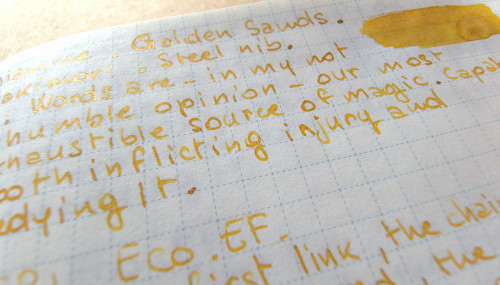 Golden Sands.
Steel nib.
Words are - in my not
humble opinion - our most
source of magic. capab
both inflicting injury and
edying it.
Eco. EF.
first link, the chain
, the